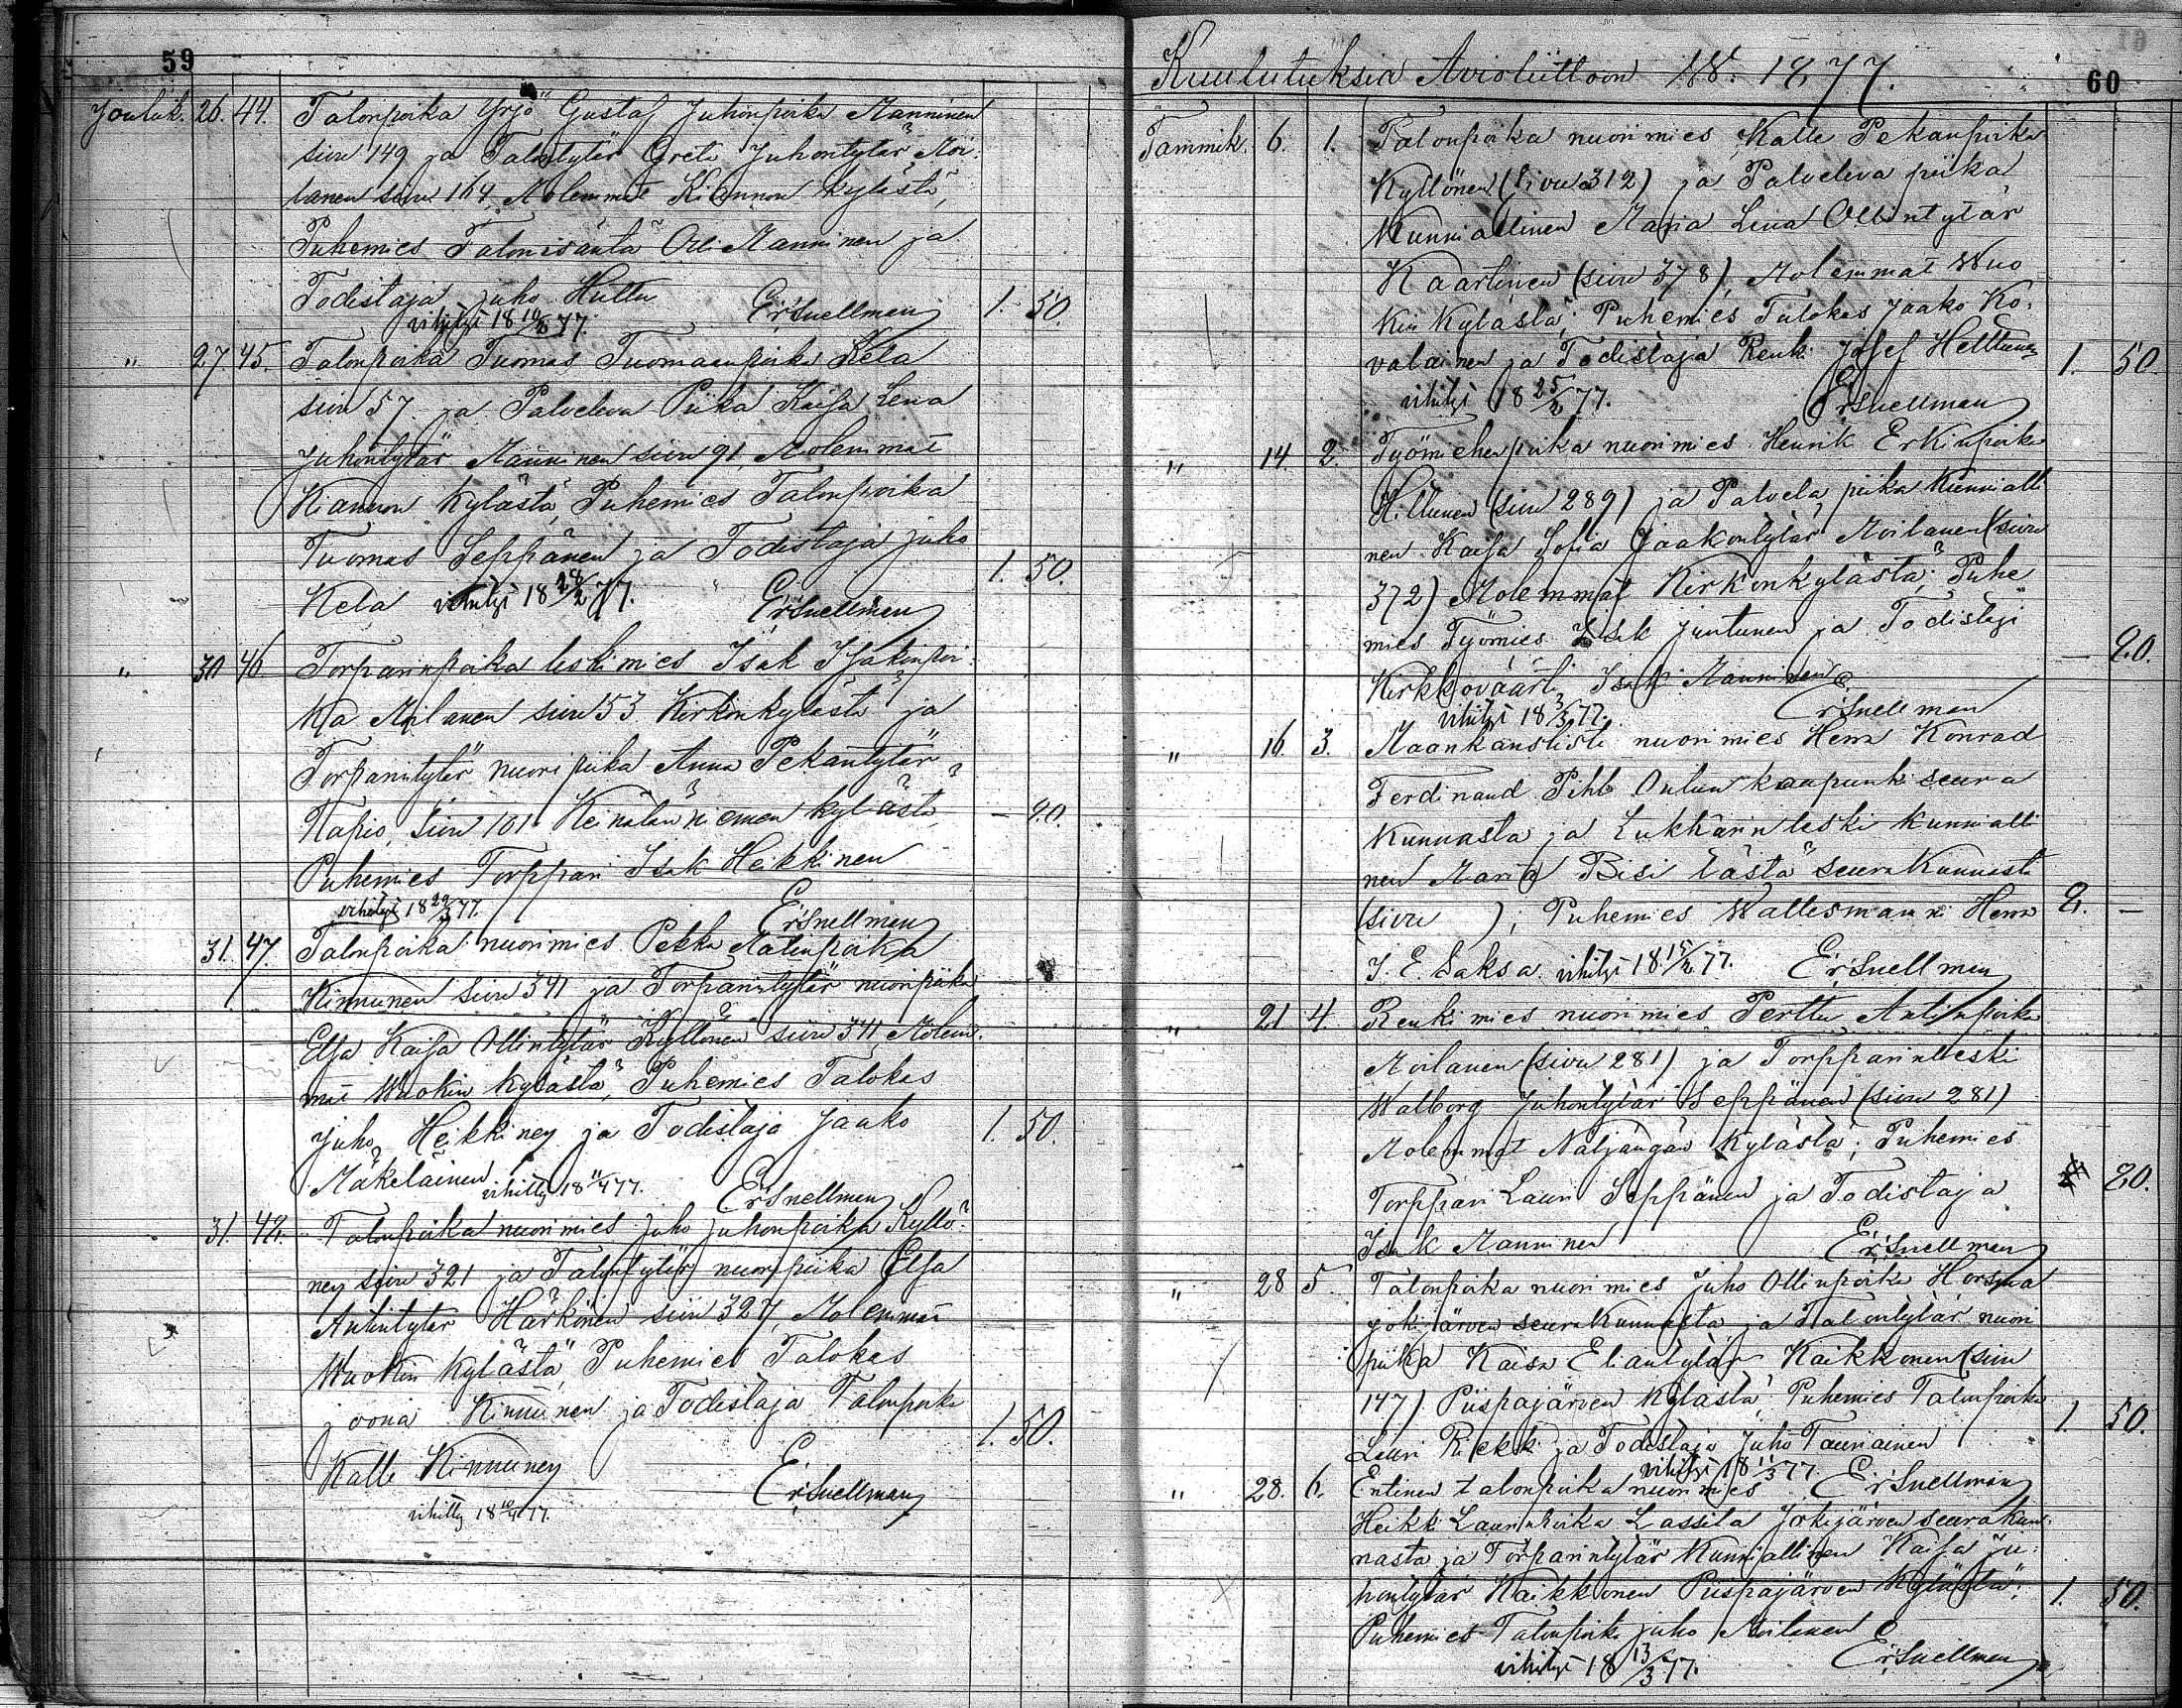 59
Jouluk. 26. 44. Talonpoika Yrjö Gustaf Juhonpoika Manninen
sivu 149 ja Talontytär Greta Juhontytär Moi-
lanen sivu 164, Molemmat Kiannon kylästä,
Puhemies Talonisäntä Olli Manninen ja
Todistaja Juho Huttu ErSnellman 1. 50.
vihityt 18 77.
" 27. 45. Talonpoika Tuomas Tuomaanpoika Kela
sivu 57 ja Palveleva Piika Kaisa Lena
Juhontytär Manninen sivu 91, Molemmat
Kiannon Kylästä, Puhemies Talonpoika
Tuomas Seppänen ja Todistaja Juho 1. 50.
Kela vihityt 18 28/2 77. ErSnellman
" 30 46. Torparinpoika leskimies Isak Isakinpoi-
ka Moilanen sivu 53 Kirkonkylästä ja
Torparintytär nuori piika Anna Pekantytär
Kapio, Sivu 101 Keinälänniemen kylästä, — 80.
Puhemies Torppari Isak Heikkinen
vihityt 18 77. ErSnellman
31. 47. Talonpoika nuorimies Pekka Matinpoika
Kinnunen Sivu 341 ja Torparintytär nuoripiika
Elsa Kaisa Ollintytär Kyllönen sivu 341 Molem-
mat Wuokin kylästä, Puhemies Talokas
Juho Heikkinen ja Todistaja Jaako 1. 50.
Mäkeläinen vihitty 18 11/4 77. ErSnellman
31. 48. Talonpoika nuorimies Juho Juhonpoika Kyllö-
nen sivu 321 ja Talontytär nuori piika Elsa
Antintytär Härkönen sivu 327, Molemmat
Wuokin Kylästä, Puhemies Talokas
Joona Kinnunen ja Todistaja Talonpoika
Kalle Kinnunen ErSnellman 1. 50.
vihitty 18 10/4 77.
Kuulutuksia Avioliittoon 1877. 60
Tammik. 6. 1. Talonpoika nuorimies Kalle Pekanpoika
Kyllönen (sivu 312) ja Palveleva piika
Kunniallinen Maria Lena Ollintytär
Kaartinen (sivu 378), Molemmat Wuo
kin Kylästä; Puhemies Tulokas Jaako Ko-
valainen ja Todistaja Renki Josef Helttunen 1. 50.
vihityt 18 25/2 77. ErSnellman
" 14. 2. Työmiehenpoika nuorimies Henrik Erkinpoika
Hiltunen (sivu 289) ja Palvela piika Kunnialli
nen Kaisa Sofia Jaakontytär Moilanen (sivu
372) Molemmat Kirkonkylästä; Puhe
mies Työmies Isak Juntunen ja Todistaja
Kirkkoväärti Isak Manninen — 80.
vihityt 18 3/3 77. ErSnellman
" 16. 3. Maankanslisti nuorimies Herra Konrad
Ferdinand Pihl Oulun kaupunki seura
Kunnasta ja Lukkarin leski Kunnialli
nen Maria Bisi tästä seurakunnasta
(sivu ); Puhemies Wallesmanni Herra 2. —
J. E. Saksa vihityt 18 15/2 77. ErSnellman
" 21 4. Renkimies nuorimies Perttu Antinpoika
Moilanen (sivu 281) ja Torpparinleski
Walborg Juhontytär Seppänen (sivu 281)
Molemmat Näljängän Kylästä; Puhemies
Torppari Lauri Seppänen ja Todistaja 80.
Isak Manninen ErSnellman
" 28 5 Talonpoika nuorimies Juho Ollinpoika Horsma
jokijärven seurakunnasta ja Talontytär nuori
piika Kaisa Eliantytär Kaikkonen (sivu
147) Piispajärven Kylästä, Puhemies Talonpoika
Lauri Riekki ja Todistaja Juho Tauriainen 1. 50.
vihityt 18 11/3 77. ErSnellman
" 28. 6. Entinen talonpoika nuorimies
Heikki Laurinpoika Lassila Jokijärven seurakun-
nasta ja Torparintytär Kunniallinen Kaisa Ju-
hontytär Kaikkonen Piispajärven Kylästä; 1. 50.
Puhemies Talonpoika Juho Moilanen
vihityt 18 13/3 77. ErSnellman